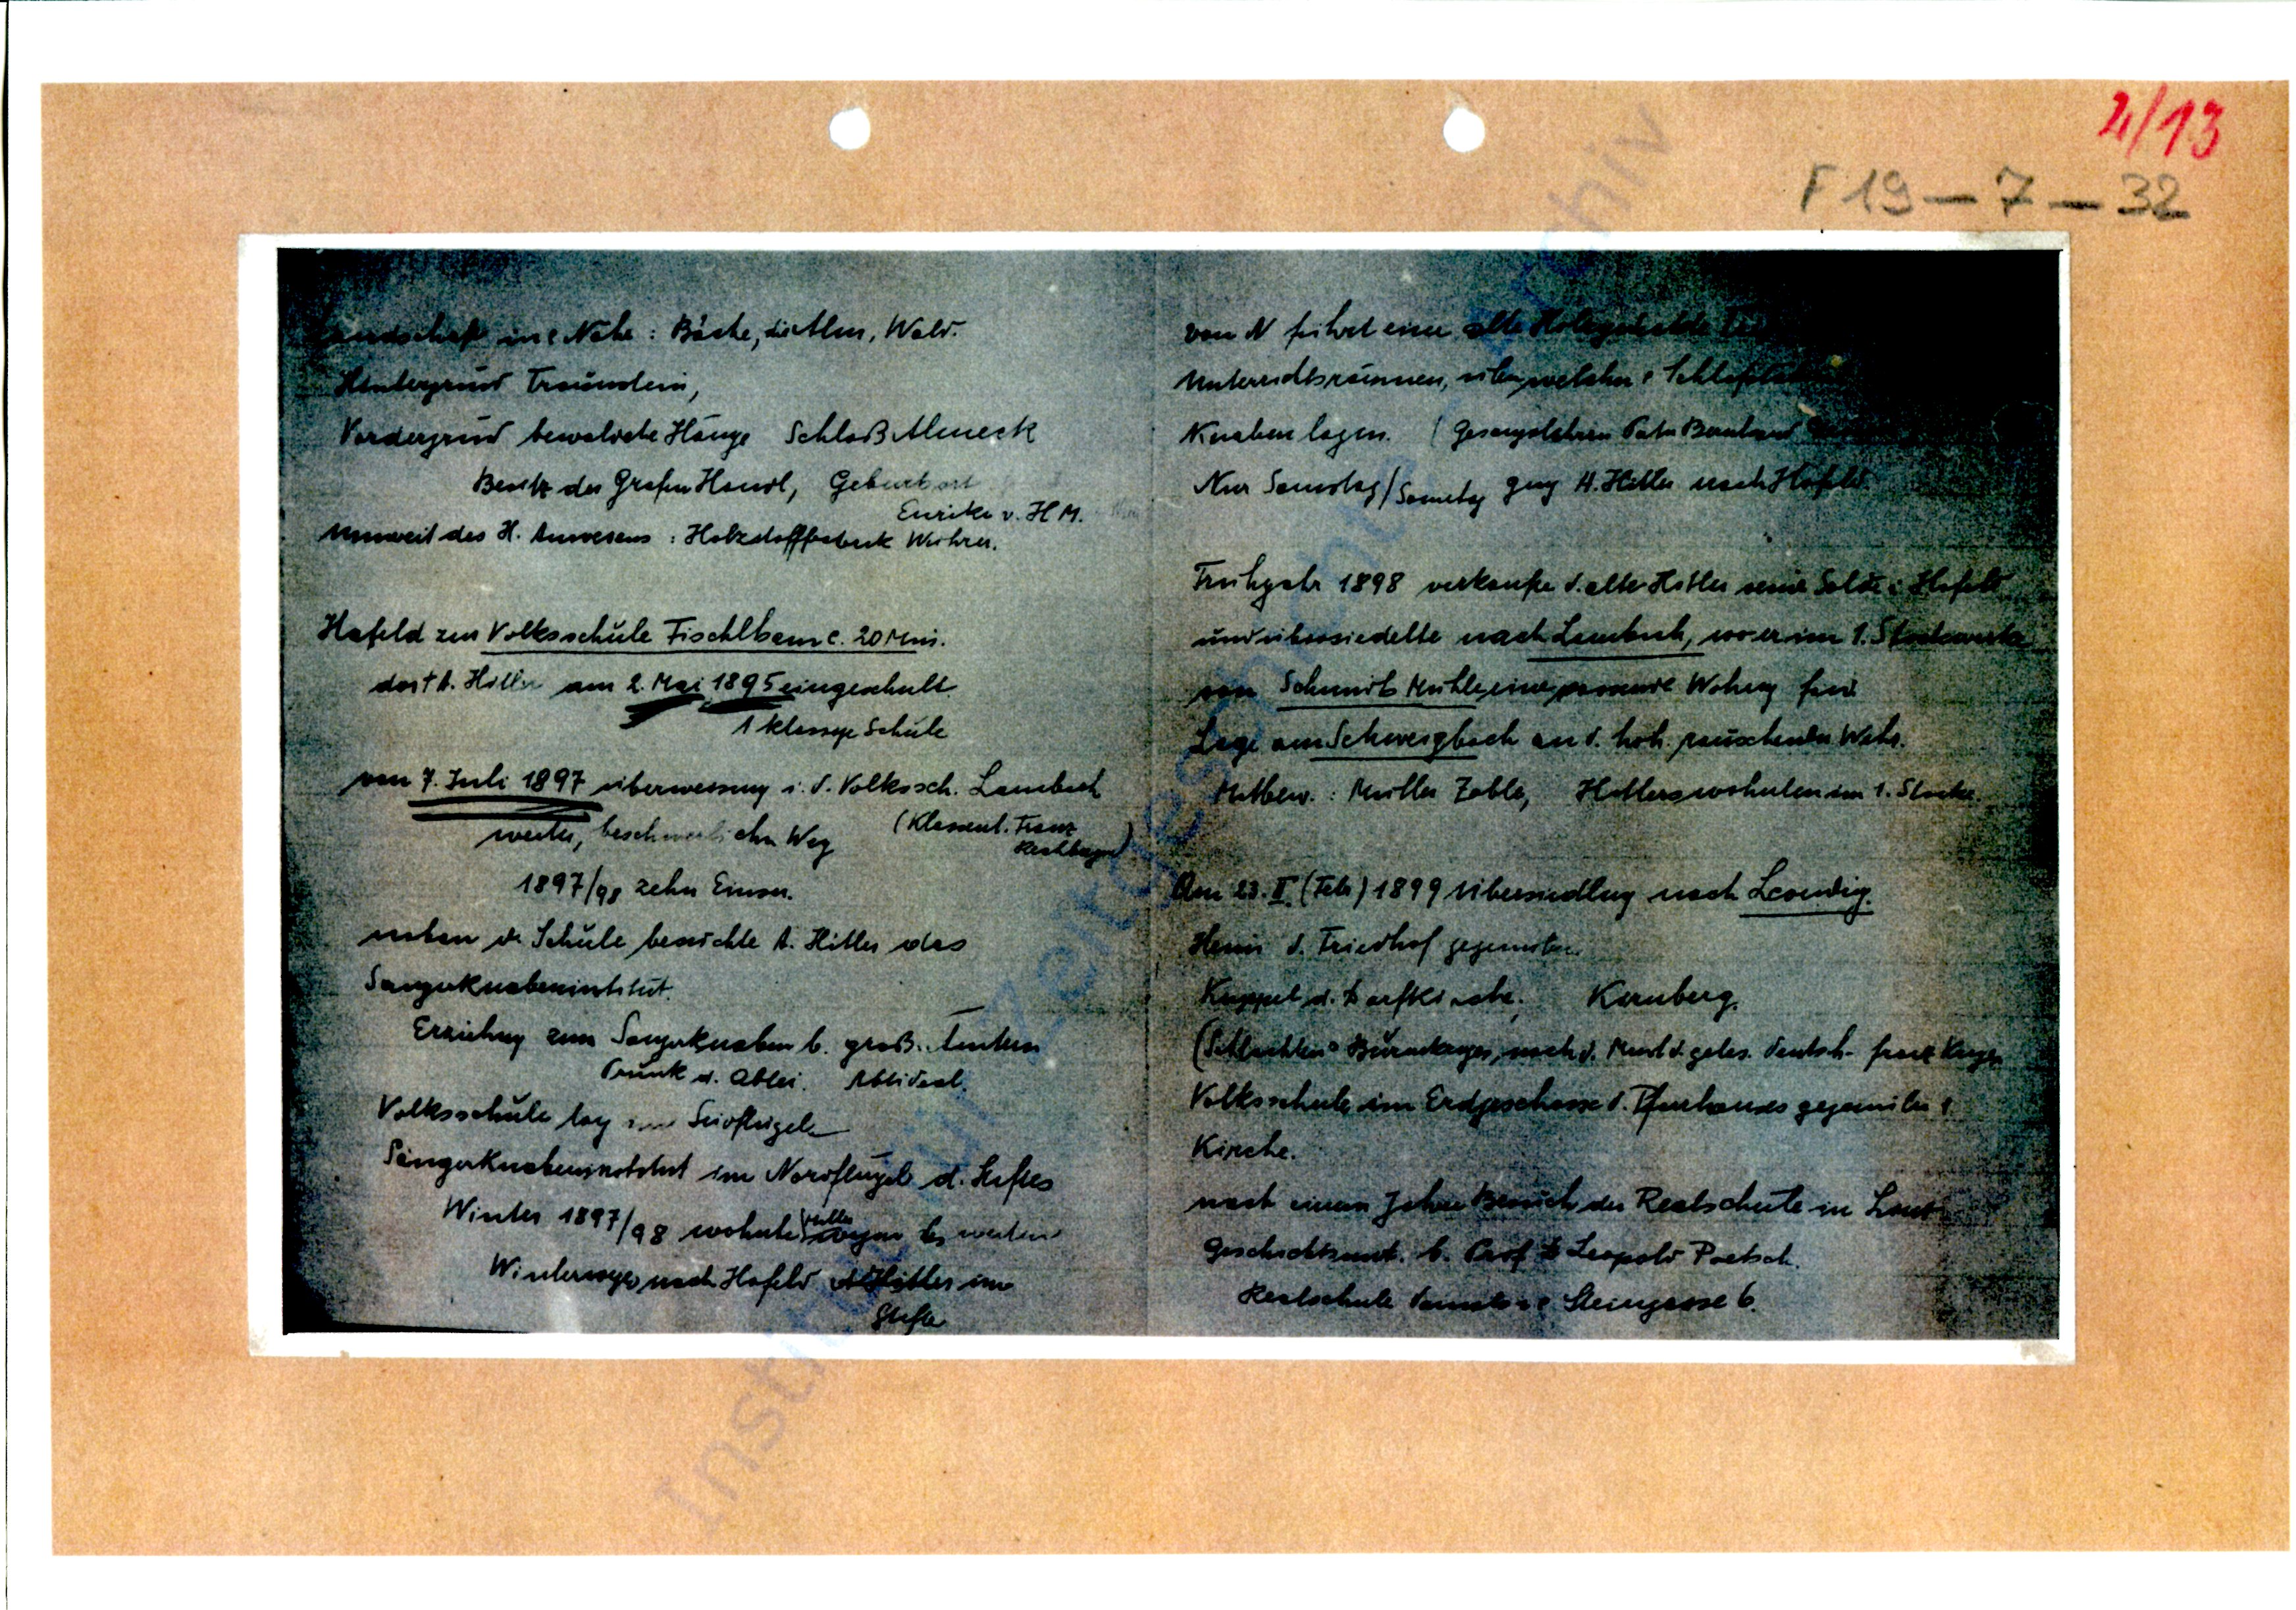 4/13
F 19 – 7 – 32
Landschaft in d. Nähe: Bäche, die Alm, Wald.
Hintergrund Traunstein,
Vordergrund bewaldete Hänge Schloß Almeck
Besitz der Grafen Handl, Geburtsort
Enrika v. H M.
Unweit des H. Anwesens: Holzstofffabrik Wührer.
Hafeld zur Volksschule Fischlham c. 20 Min.
dort A. Hitler am 2. Mai 1895 eingeschult
1 klassige Schule
vom 7. Juli 1897 überweisung i. d. Volkssch. Lambach
weiter, beschwerlicher Weg
(Klassenl. Franz
1897/98 zehn Einser.
neben d. Schule besuchte A. Hitler das
Sängerknabeninstitut.
Erziehung zum Sängerknaben b. groß.
Prunk d. Abtei.
Volksschule lag im Südflügel
Sängerknabeninstitut im Nordflügel d. Stiftes
Winter 1897/98 wohnte Hitler wegen des weiten
Winterweges nach Hafeld A Hitler im
Stifte
von N führt eine alte
Unterrichtsräumen, über welchen
Knaben lagen. (Gesangslehrer Pater Bernhard
Nur Samstag/Sonntag ging A. Hitler nach Hafeld.
Frühjahr 1898 verkaufte d. alte Hitler seine Sölde i Hafeld
und übersiedelte nach Lambach, wo er im 1. Stockwerke
von Schmidt Mühle eine passende Wohnung fand
Lage am Schweigbach an d. hoh. rauschenden Wehr.
Mitbew.: Müller Zoble, Hitlers wohnten im 1. Stocke.
Am 23. II. (Feb) 1899 Übersiedlung nach Leonding.
Haus d. Friedhof gegenüber
Kuppel d. Dorfkirche, Kürnberg.
(Schlachten Bürenkrieges, nach d. deutsch- franz Krieges
Volksschule im Erdgeschosse d. Pfarrhauses gegenüber d.
Kirche.
nach einem Jahre Besuch der Realschule in Linz
Geschichtsunt. b. Prof Dr Leopold Poetsch.
Realschule Steingasse 6.
Institut für Zeitgeschichte - Archiv